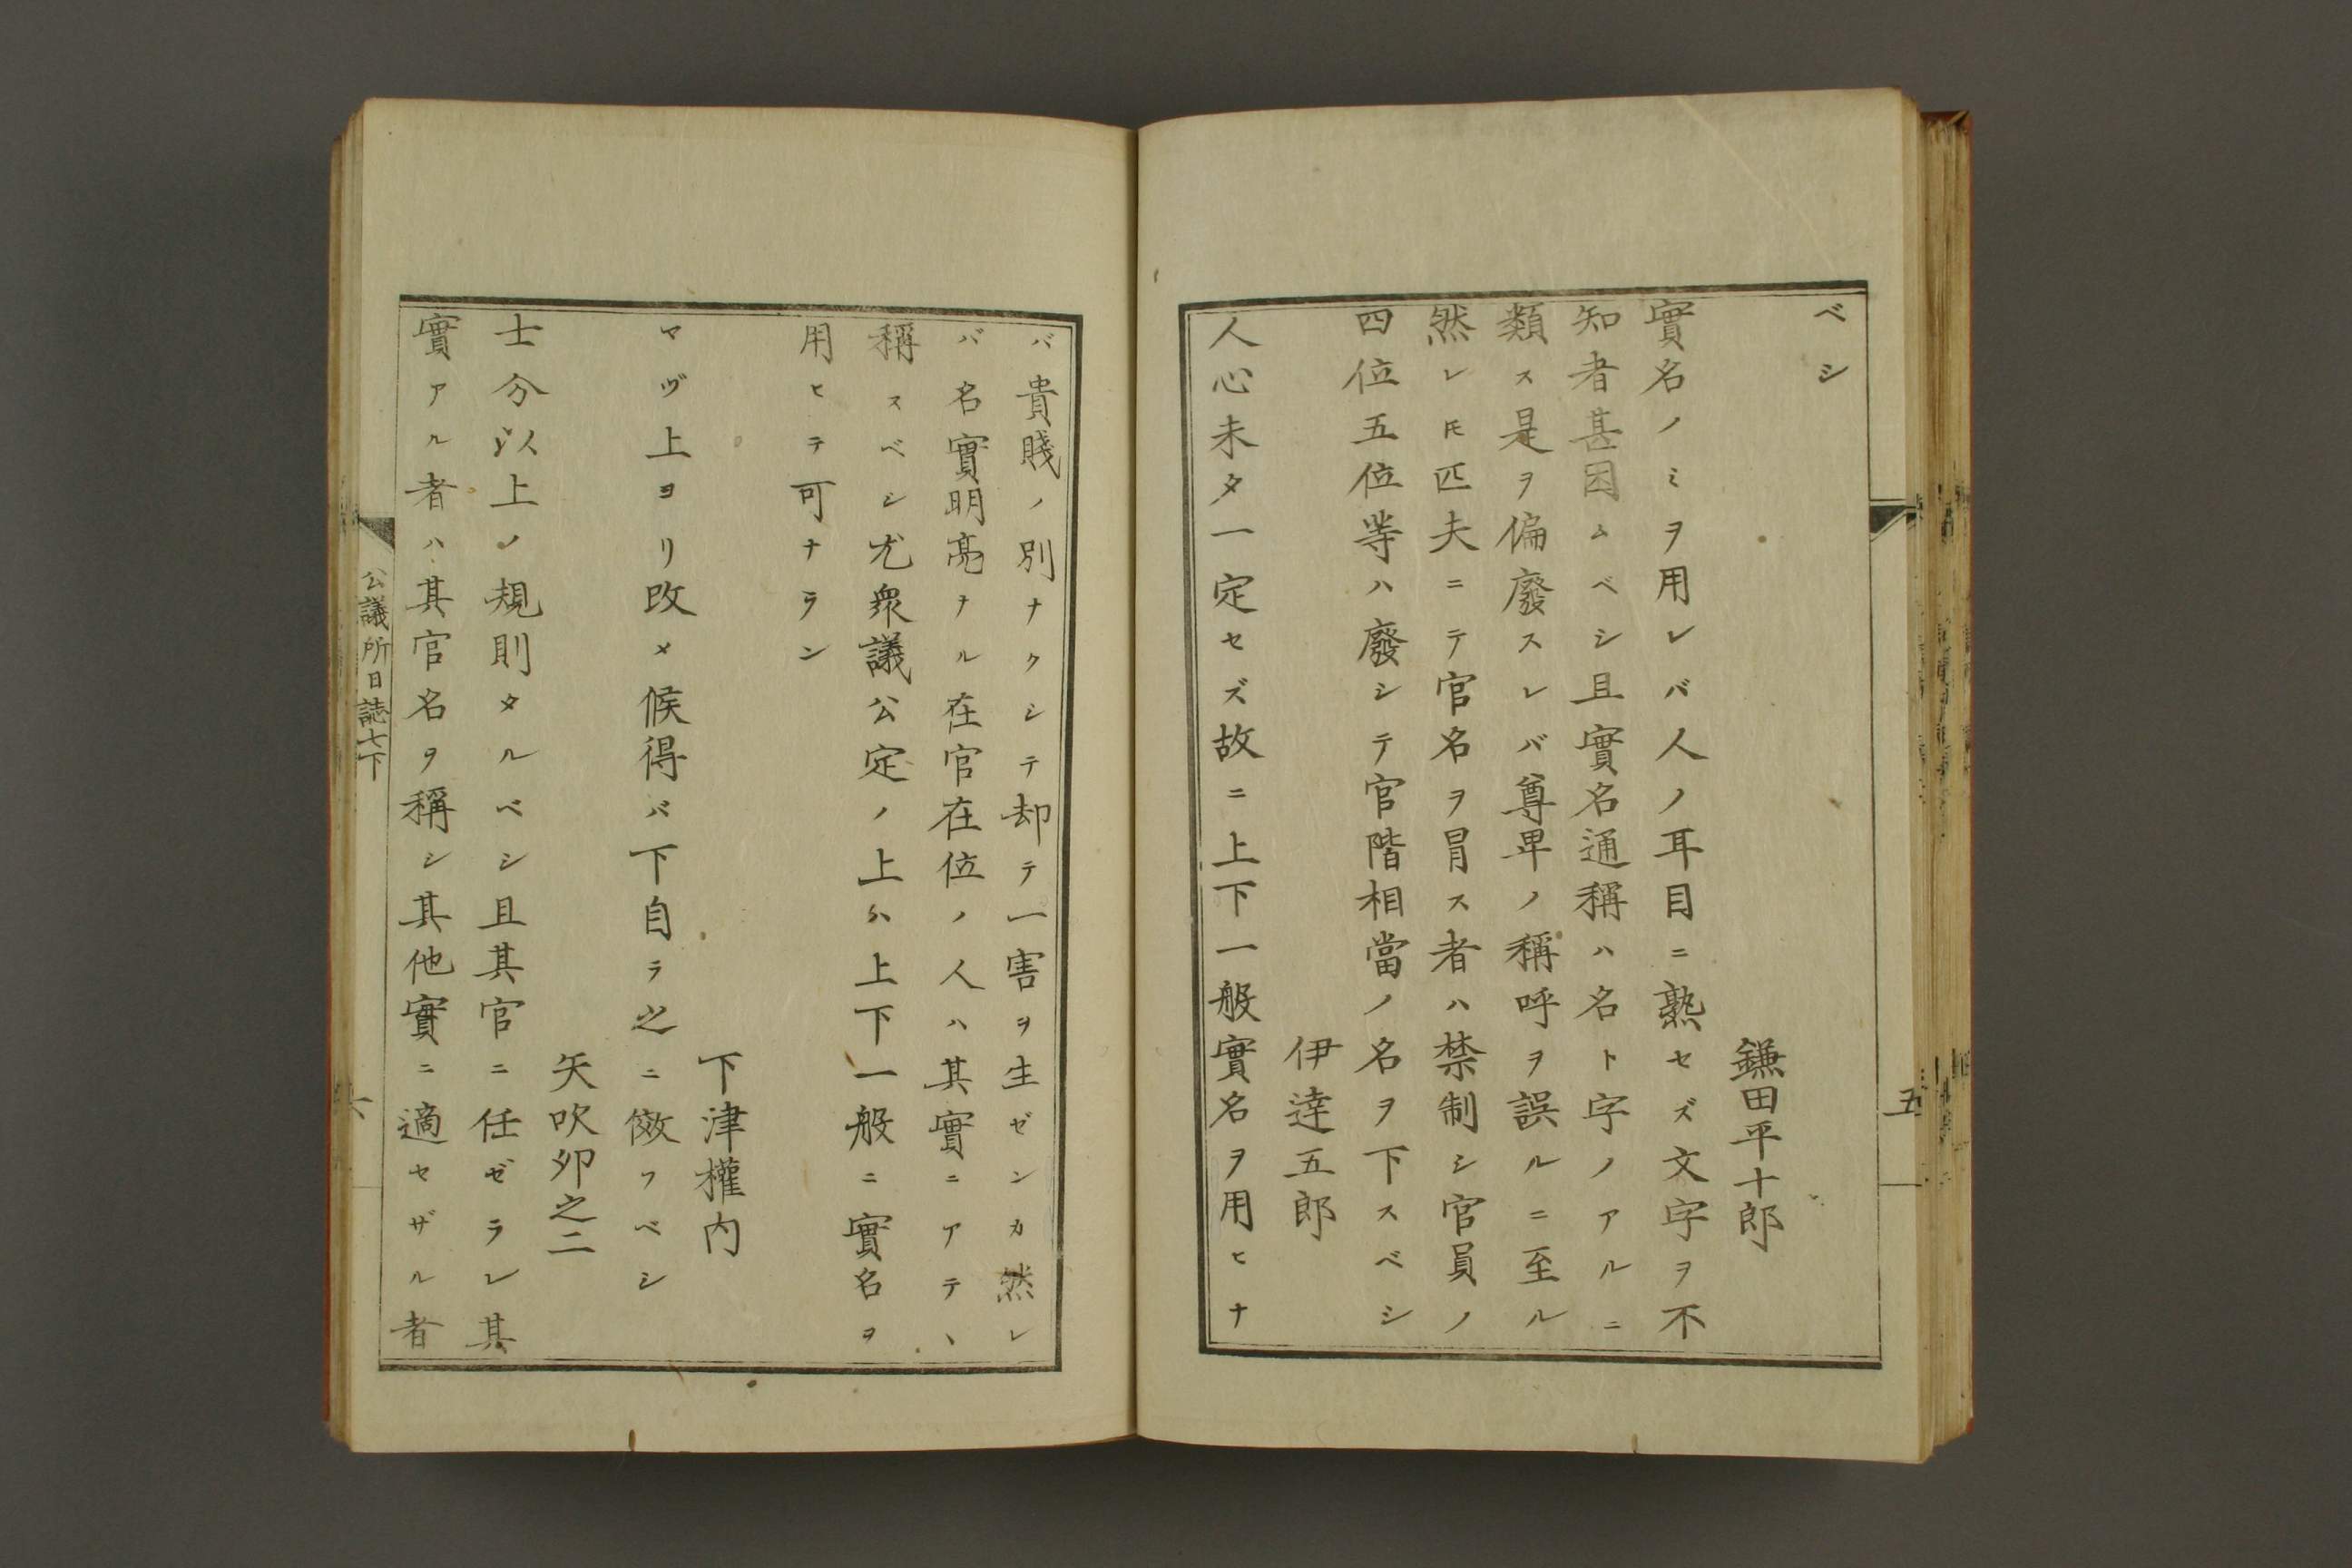 ベシ
鎌田平十郎
實名ノミヲ用レバ人ノ耳目ニ熟セズ文字ヲ不
知者甚困ムベシ且實名通稱ハ名ト字ノアルニ
類ス是ヲ偏廢スレバ尊卑ノ稱呼ヲ誤ルニ至ル
然レ𪜈匹夫ニテ官名ヲ冒ス者ハ禁制シ官員ノ
四位五位等ハ廢シテ官階相當ノ名ヲ下スベシ
伊達五郎
人心未タ一定セズ故ニ上下一般實名ヲ用ヒナ
五
バ貴賤ノ別ナクシテ却テ一害ヲ生ゼンカ然レ
バ名實明亮ナル在官在位ノ人ハ其實ニアテヽ
稱スベシ尤衆議公定ノ上ハ上下一般ニ實名ヲ
用ヒテ可ナラン
下津權内
マヅ上ヨリ改メ候得バ下自ラ之ニ傚フベシ
矢吹夘之二
士分以上ノ規則タルベシ且其官ニ任ゼラレ其
實アル者ハ其官名ヲ稱シ其他實ニ適セザル者
公議所日誌七下